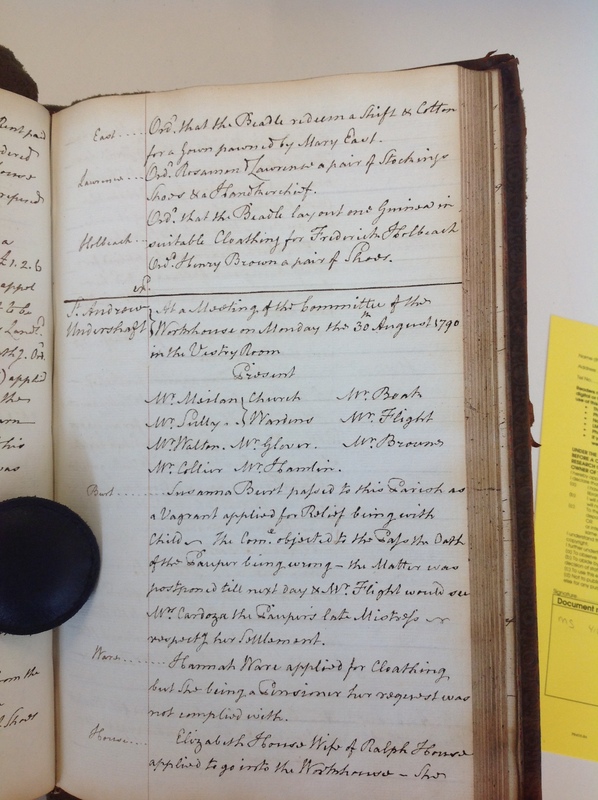 East.... Ord.^d that the Beadle redeem a Shift & Cotton
for a Gown pawned by Mary East.
Lawrence... Ord.^d Rosamond Lawrence a pair of Stockings
Shoes & a Handkerchief.
Ord.^d that the Beadle lay out one Guinea in
Holbeach.. suitable Cloathing for Frederick Holbeach
Ord.^d Henry Brown a pair of Shoes.
S.^t Andrew At a Meeting of the Committee of the
Undershaft Workhouse on Monday the 30.^th August 1790
in the Vestry Room
Present
M.^r Meilan Church M.^r Boak
M.^r Sully.. Wardens M.^r Flight
M.^r Walton. M.^r Glover. M.^r Brown
M.^r Collier M.^r Hamlin.
Burt........ Susanna Burt passed to this Parish as
a Vagrant applied for Relief being with
Child – The Com.^e objected to the Pass the Oath
of the Pauper being wrong – the Matter was
postponed till next day & M.^r Flight would see
M.^rs Cardoza the Paupers late Mistress
respect.^g her Settlement.
Ware....... Hannah Ware applied for Cloathing
but She being a Pensioner her request was
not complied with.
House.... Elizabeth House Wife of Ralph House
applied to go into the Workhouse – She
£1.2.6
to be
applied
the
his
was
from the
Shoes
Signature
Document
MS